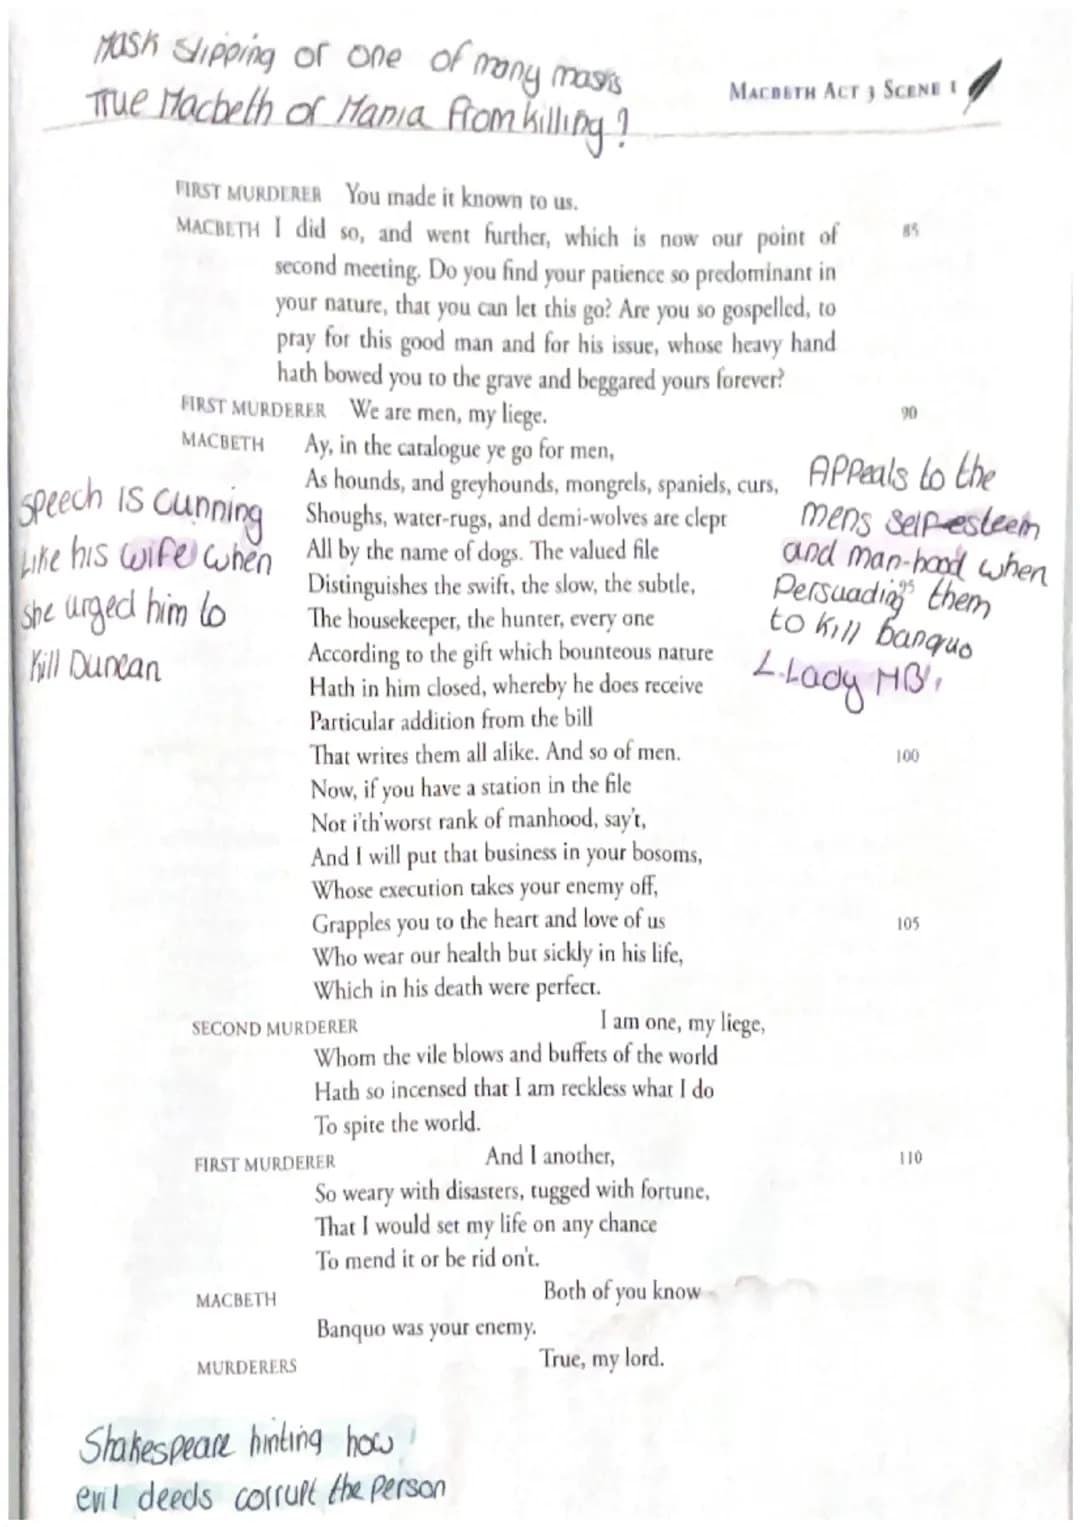 Mask slipping or one of many masks
MACBETH ACT 3 SCENE 1
True Macbeth or Mania from killing?
FIRST MURDERER You made it known to us.
MACBETH I did so, and went further, which is now our point of 85
second meeting. Do you find your patience so predominant in
your nature, that you can let this go? Are you so gospelled, to
pray for this good man and for his issue, whose heavy hand
hath bowed you to the grave and beggared yours forever?
FIRST MURDERER We are men, my liege. 90
MACBETH Ay, in the catalogue ye go for men,
As hounds, and greyhounds, mongrels, spaniels, curs,
Shoughs, water-rugs, and demi-wolves are clept
All by the name of dogs. The valued file
Distinguishes the swift, the slow, the subtle, 95
The housekeeper, the hunter, every one
According to the gift which bounteous nature
Hath in him closed, whereby he does receive
Particular addition from the bill
That writes them all alike. And so of men. 100
Now, if you have a station in the file
Not i'th'worst rank of manhood, say't,
And I will put that business in your bosoms,
Whose execution takes your enemy off,
Grapples you to the heart and love of us 105
Who wear our health but sickly in his life,
Which in his death were perfect.
SECOND MURDERER I am one, my liege,
Whom the vile blows and buffets of the world
Hath so incensed that I am reckless what I do
To spite the world.
FIRST MURDERER And I another, 110
So weary with disasters, tugged with fortune,
That I would set my life on any chance
To mend it or be rid on't.
MACBETH Both of you know
Banquo was your enemy.
MURDERERS True, my lord.
Speech is cunning
Like his wife when
she urged him to
Kill Duncan
Appeals to the
mens self-esteem
and man-hood when
Persuading them
to kill banquo
L.Lady MB.
Shakespeare hinting how
evil deeds corrupt the person